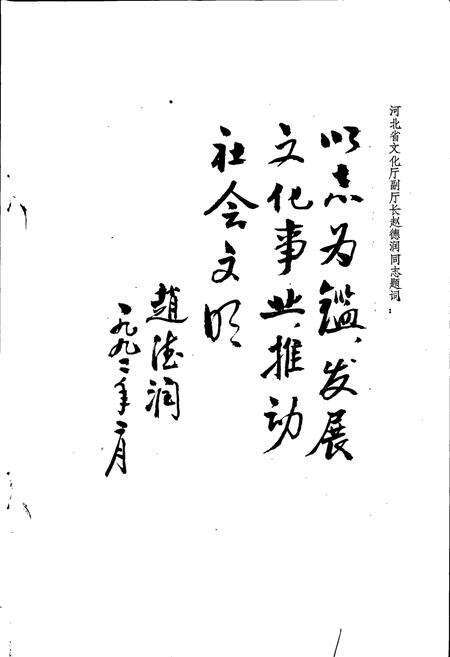 河北省文化厅副厅长赵德润同志题词：
以志为鑑、发展
文化事业、推动
社会文明
趙德润
一九九二年二月